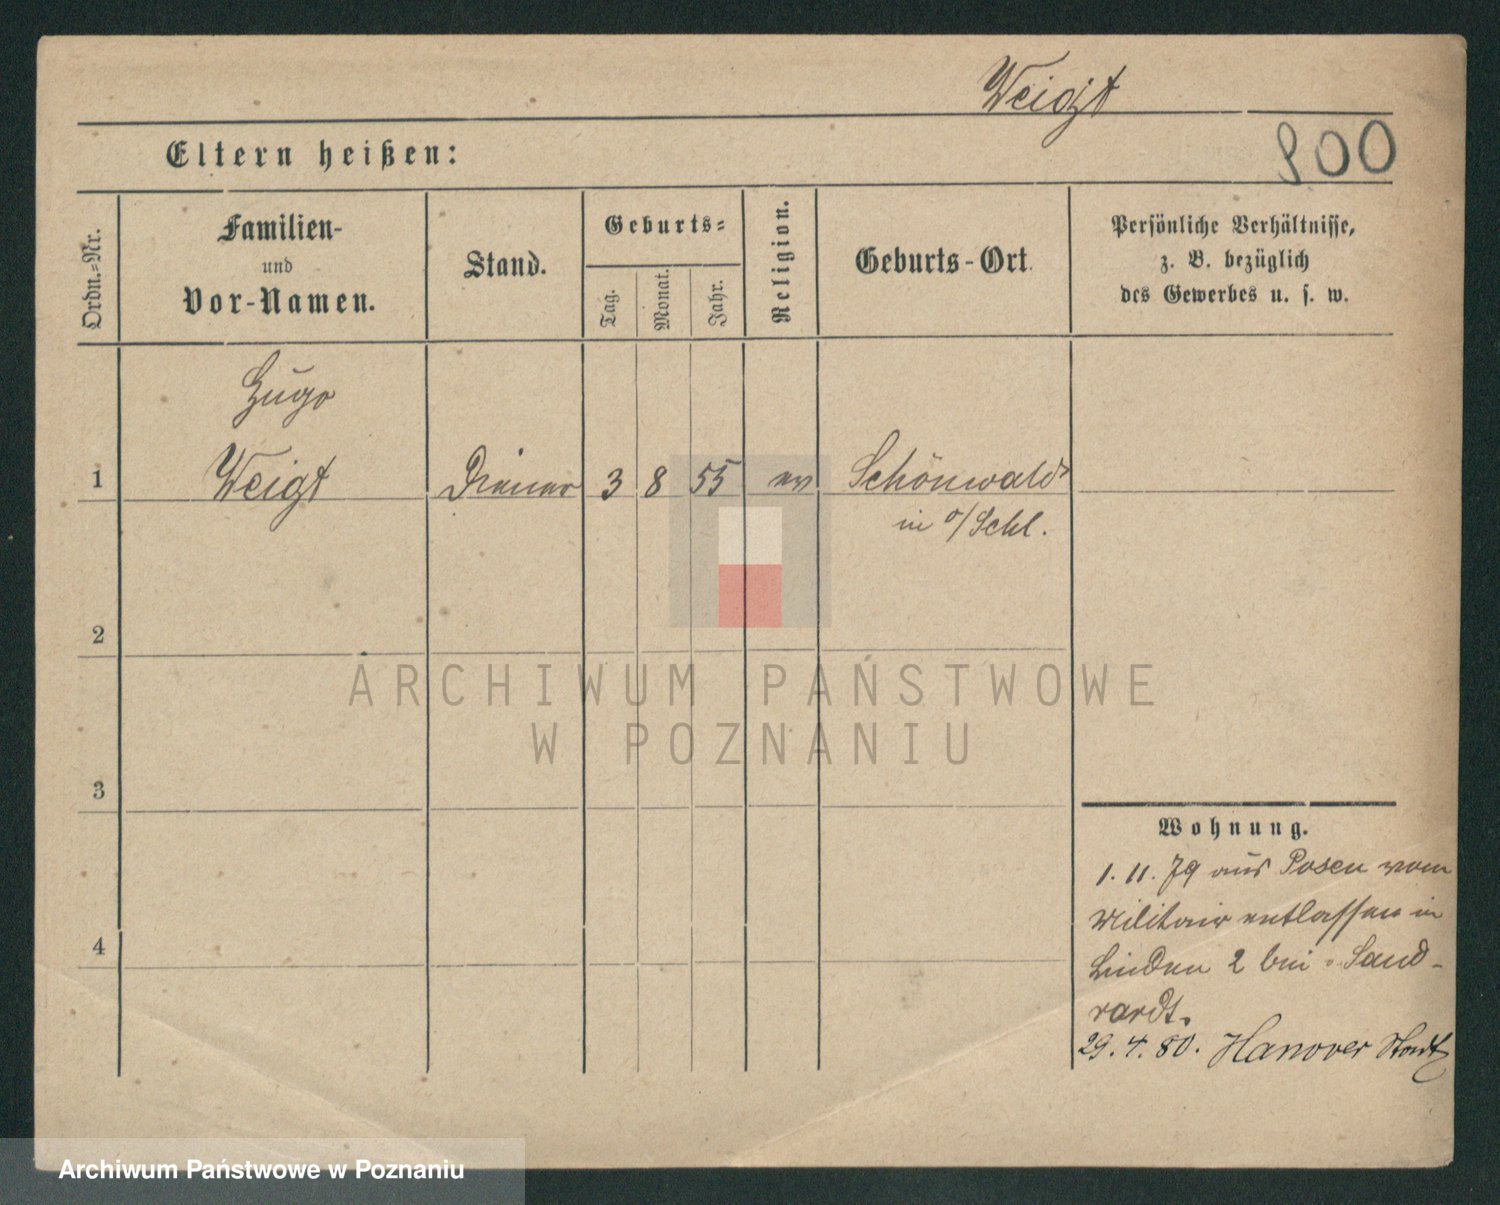 Weigt
900
Eltern heißen:
Ordn.-Nr.
Familien-
und
Vor-Namen.
Stand.
Geburts-
Tag.
Monat.
Jahr.
Religion.
Geburts-Ort.
Persönliche Verhältnisse,
z. B. bezüglich
des Gewerbes u. s. w.
Hugo
1 Weigt Diener 3 8 55 ev Schönwald
in o/Schl.
2
ARCHIWUM PAŃSTWOWE
W POZNANIU
3
Wohnung.
1. 11. 79 aus Posen vom
Militair entlassen in
4
Linden 2 bei Sand-
29. 4. 80. Hanover Stadt
Archiwum Państwowe w Poznaniu